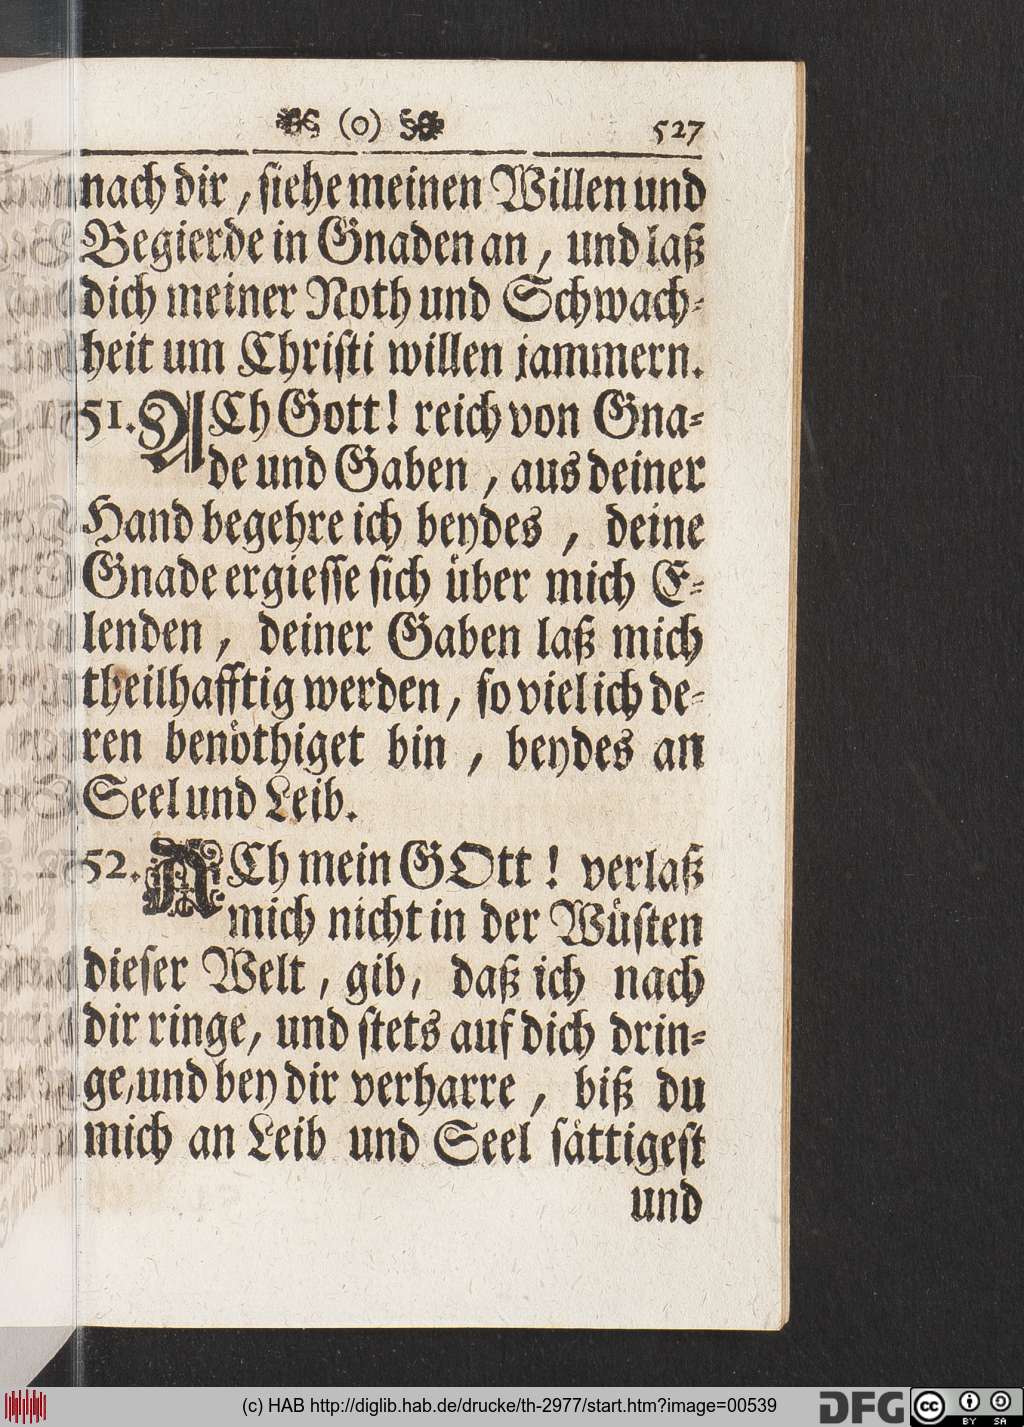 (o) 527
nach dir, siehe meinen Willen und
Begierde in Gnaden an, und laß
dich meiner Noth und Schwach-
heit um Christi willen jammern.
51. ACh Gott! reich von Gna-
de und Gaben, aus deiner
Hand begehre ich beydes, deine
Gnade ergiesse sich über mich E-
lenden, deiner Gaben laß mich
theilhafftig werden, so viel ich de-
ren benöthiget bin, beydes an
Seel und Leib.
52. ACh mein GOtt! verlaß
mich nicht in der Wüsten
dieser Welt, gib, daß ich nach
dir ringe, und stets auf dich drin-
ge, und bey dir verharre, biß du
mich an Leib und Seel sättigest
und
(c) HAB http://diglib.hab.de/drucke/th-2977/start.htm?image=00539
DFG
cc BY SA